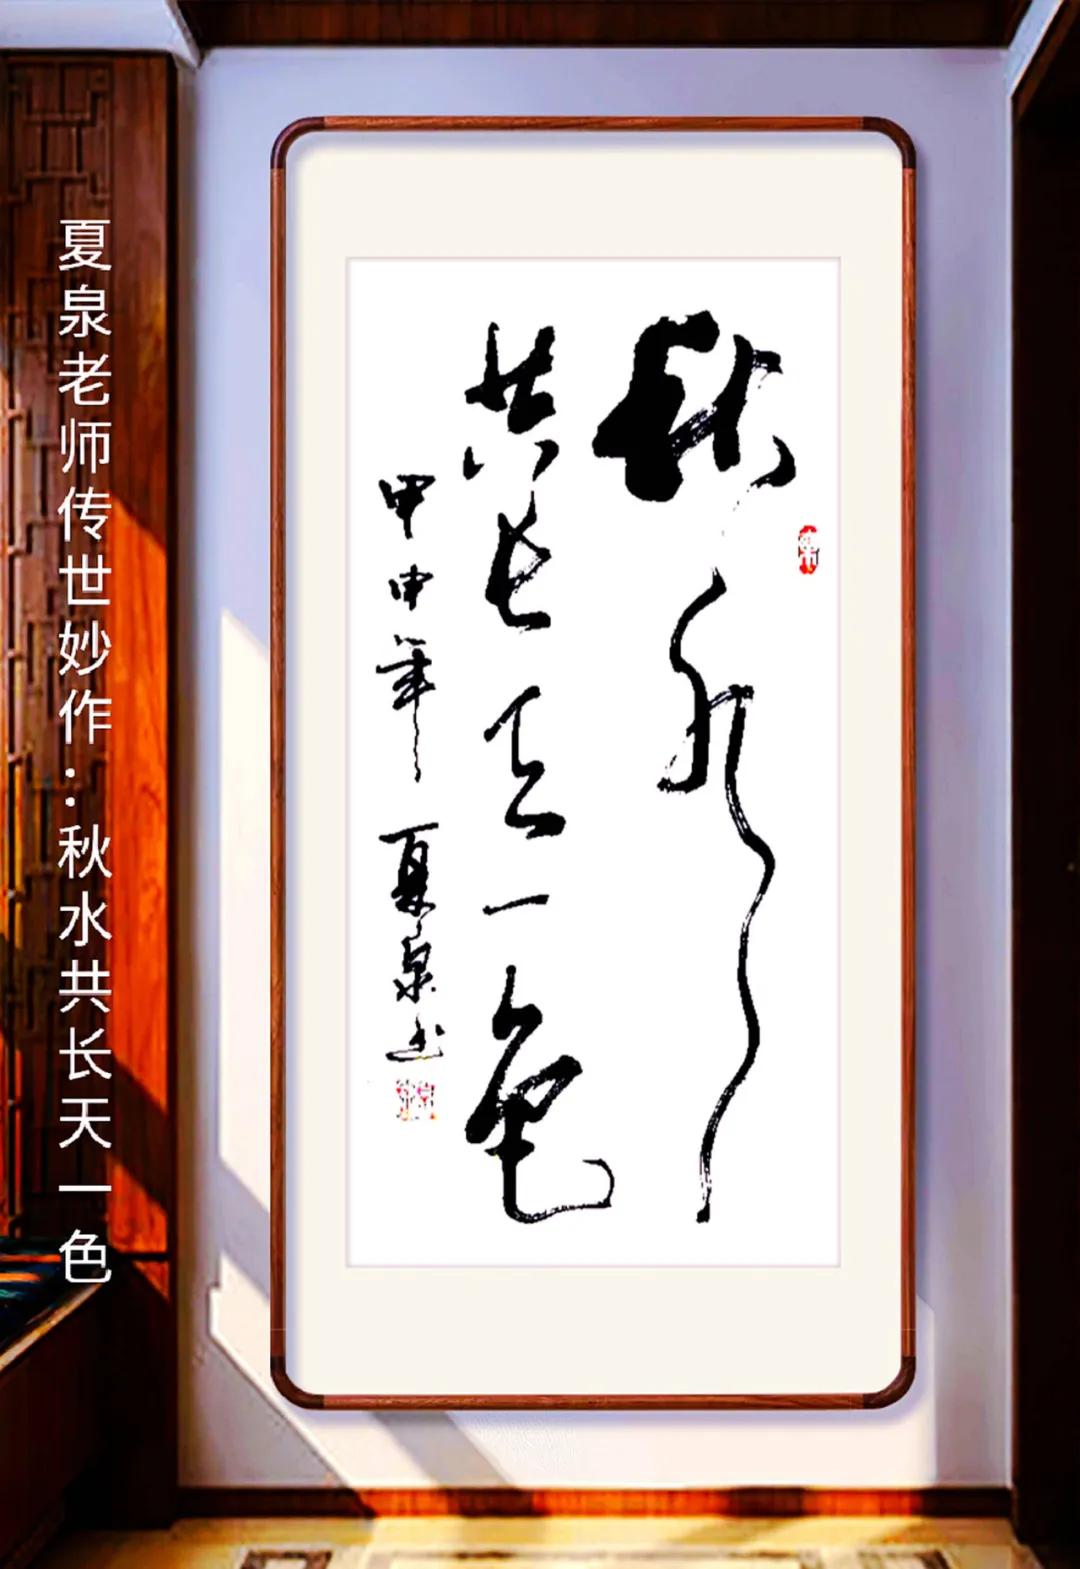 夏泉老师传世妙作：秋水共长天一色
秋水
共长天一色
甲申年夏泉书